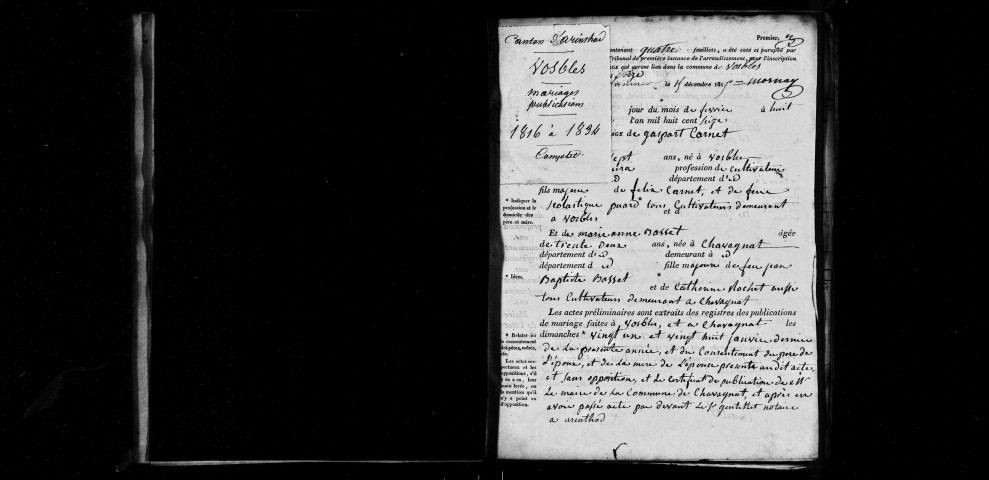 Canton d'arinthod
Vosbles
mariages
publications
1816 à 1834
Complet
Premier,
contenant quatre feuillets, a été coté et paraphé par
Tribunal de première instance de l'arrondissement, pour l'inscription
qui auront lieu dans la commune de Vosbles
le 15 décembre 1815 = mornay
jour du mois de fevrier à huit
l'an mil huit cent seize
de gaspart Carnet
sept ans, né à Vosbles
profession de Cultivateur
département d'
fils majeur de felix Carnet, et de feue
scolastique puard tous Cultivateurs demeurant
et d
a vosbles
* Indiquer la
profession et le
domicile des
père et mère.
Et de marie anne Bosset âgée
de trente deux ans, née à Chavagnat
département d' demeurant à
département d fille majeure de feu jean
* Idem.
Baptiste Bosset
et de Catherine Rochet aussi
tous Cultivateurs demeurant a Chavagnat
Les actes préliminaires sont extraits des registres des publications
de mariage faites à Vosbles, et a Chavagnat les
dimanches * vingt un et vingt huit janvier dernier
de la presente année, et du Consentement du pere de
l'époux, et de la mere de l'épouse presente audit acte,
et sans opposition, et le certificat de publication de
Le maire de la Commune de Chavagnat, et après en
avoir passé acte par devant le Sr gentillet notaire
a arinthod
* Relater ici
le consentement
des pères, mères,
etc.
Les actes res-
pectueux et les
oppositions, s'il
y en a eu, leur
main levée, ou
la mention qu'il
n'y a point eu
d'opposition.